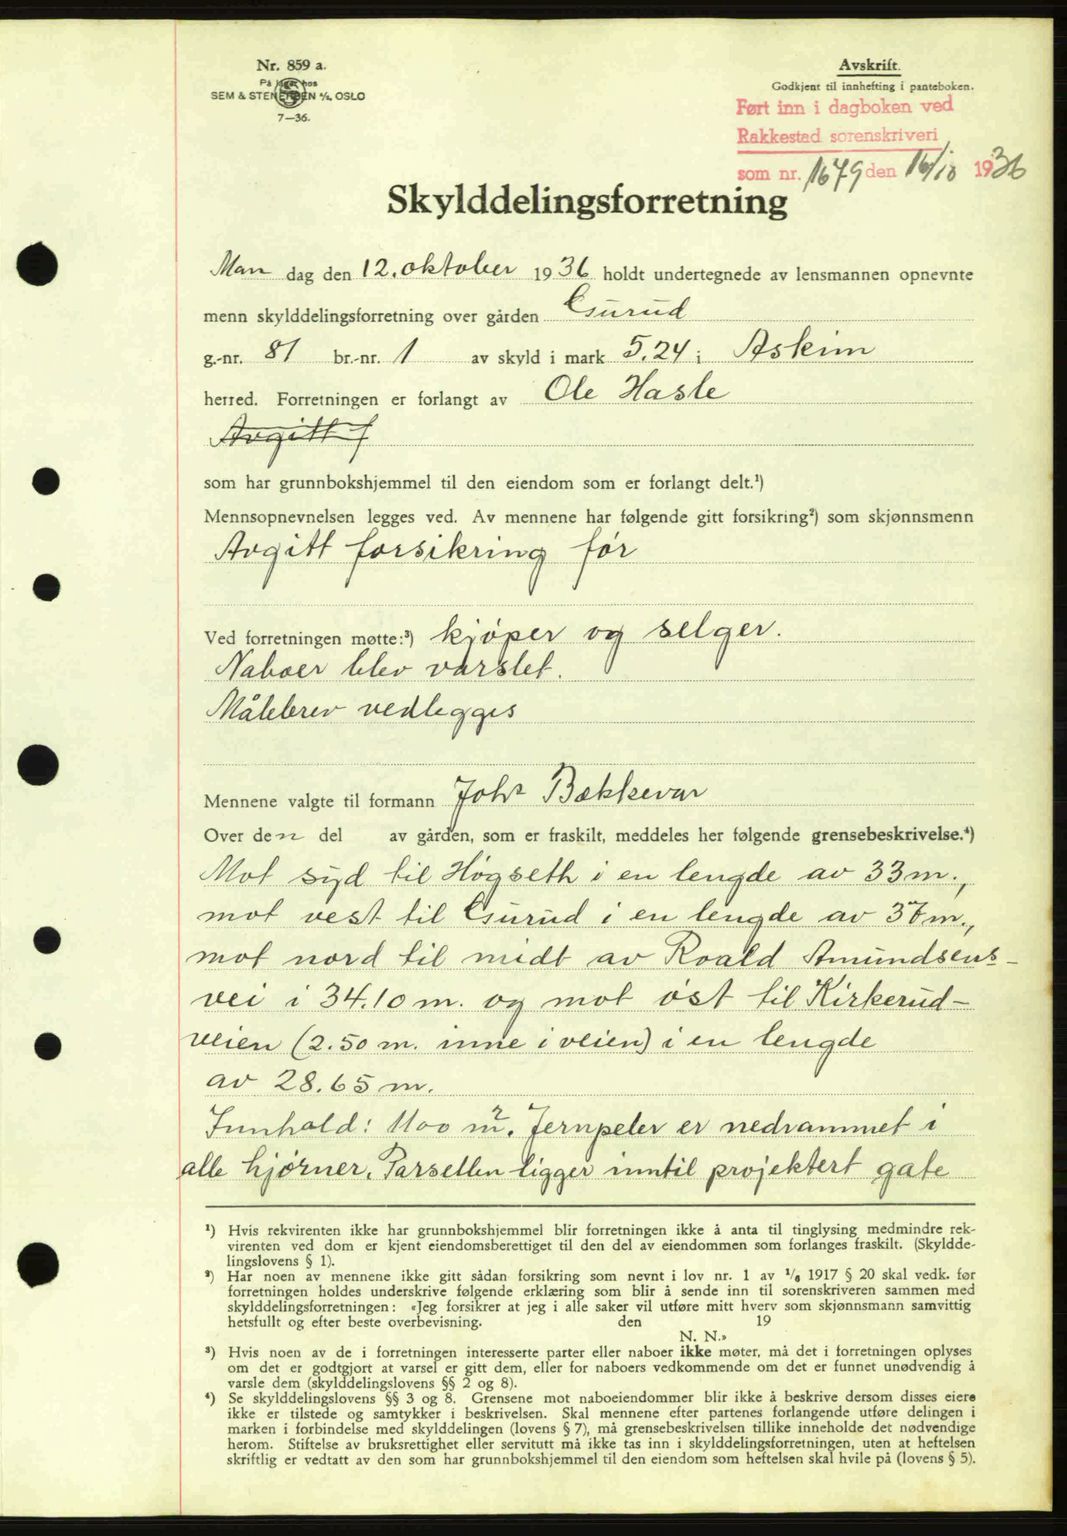 Nr. 859 a.
På lager hos
SEM & STENERSEN A/S, OSLO
7—36.
Avskrift.
Godkjent til innhefting i panteboken.
Ført inn i dagboken ved
Rakkestad sorenskriveri
som nr. 1679 den 16/10 1936
Skylddelingsforretning
Man dag den 12. oktober 1936 holdt undertegnede av lensmannen opnevnte
menn skylddelingsforretning over gården Esurud
g.-nr. 81 br.-nr. 1 av skyld i mark 5.24 i Askim
herred. Forretningen er forlangt av Ole Hasle
Avgitt f
som har grunnbokshjemmel til den eiendom som er forlangt delt.¹)
Mennsopnevnelsen legges ved. Av mennene har følgende gitt forsikring²) som skjønnsmenn
Avgitt forsikring før
Ved forretningen møtte:³) kjøper og selger.
Naboer blev varslet.
Målebrev vedlegges
Mennene valgte til formann Johs Bækkevar
Over den del av gården, som er fraskilt, meddeles her følgende grensebeskrivelse.⁴)
Mot syd til Høgseth i en lengde av 33 m.,
mot vest til Esurud i en lengde av 37 m.,
mot nord til midt av Roald Amundsens-
vei i 34.10 m. og mot øst til Kirkerud-
veien (2.50 m. inne i veien) i en lengde
av 28.65 m.
Innhold: 1100 m². Jernpeler er nedrammet i
alle hjørner. Parsellen ligger inntil projektert gate
¹) Hvis rekvirenten ikke har grunnbokshjemmel blir forretningen ikke å anta til tinglysing medmindre rek-
virenten ved dom er kjent eiendomsberettiget til den del av eiendommen som forlanges fraskilt. (Skyldde-
lingslovens § 1).
²) Har noen av mennene ikke gitt sådan forsikring som nevnt i lov nr. 1 av ¹/₆ 1917 § 20 skal vedk. før
forretningen holdes underskrive følgende erklæring som blir å sende inn til sorenskriveren sammen med
skylddelingsforretningen: «Jeg forsikrer at jeg i alle saker vil utføre mitt hverv som skjønnsmann samvittig
hetsfullt og efter beste overbevisning. den 19
N. N.»
³) Hvis noen av de i forretningen interesserte parter eller naboer ikke møter, må det i forretningen oplyses
om det er godtgjort at varsel er gitt dem, eller for naboers vedkommende om det er funnet unødvendig å
varsle dem (skylddelingslovens §§ 2 og 8).
⁴) Se skylddelingslovens §§ 3 og 8. Grensene mot naboeiendommer blir ikke å beskrive dersom disses eiere
ikke er tilstede og samtykker i beskrivelsen. Skal mennene efter partenes forlangende utføre delingen i
marken i forbindelse med skylddelingen (lovens § 7), må grensebeskrivelsen tillike inneholde det nødvendige
herom. Stiftelse av bruksrettighet eller servitutt må ikke tas inn i skylddelingsforretningen, uten at heftelsen
skriftlig er vedtatt av den som har grunnbokshjemmel til den eiendom som heftelsen skal hvile på (lovens § 5).